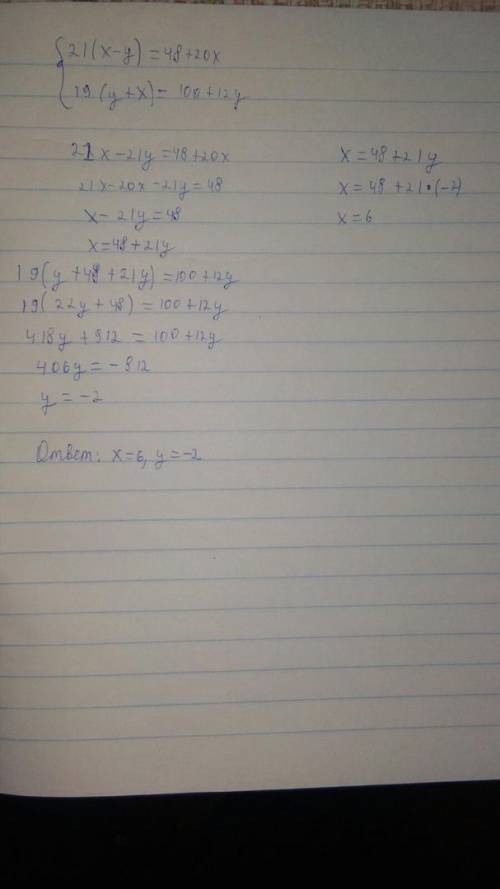 21(x-y)=48+20x
19(y+x)=100+12y
21x-21y=48+20x
21x-20x-21y=48
x-21y=48
x=48+21y
x=48+21y
x=48+21•(-2)
x=6
19(y+48+21y)=100+12y
19(22y+48)=100+12y
418y+912=100+12y
406y=-812
y=-2
Ответ: x=6, y=-2